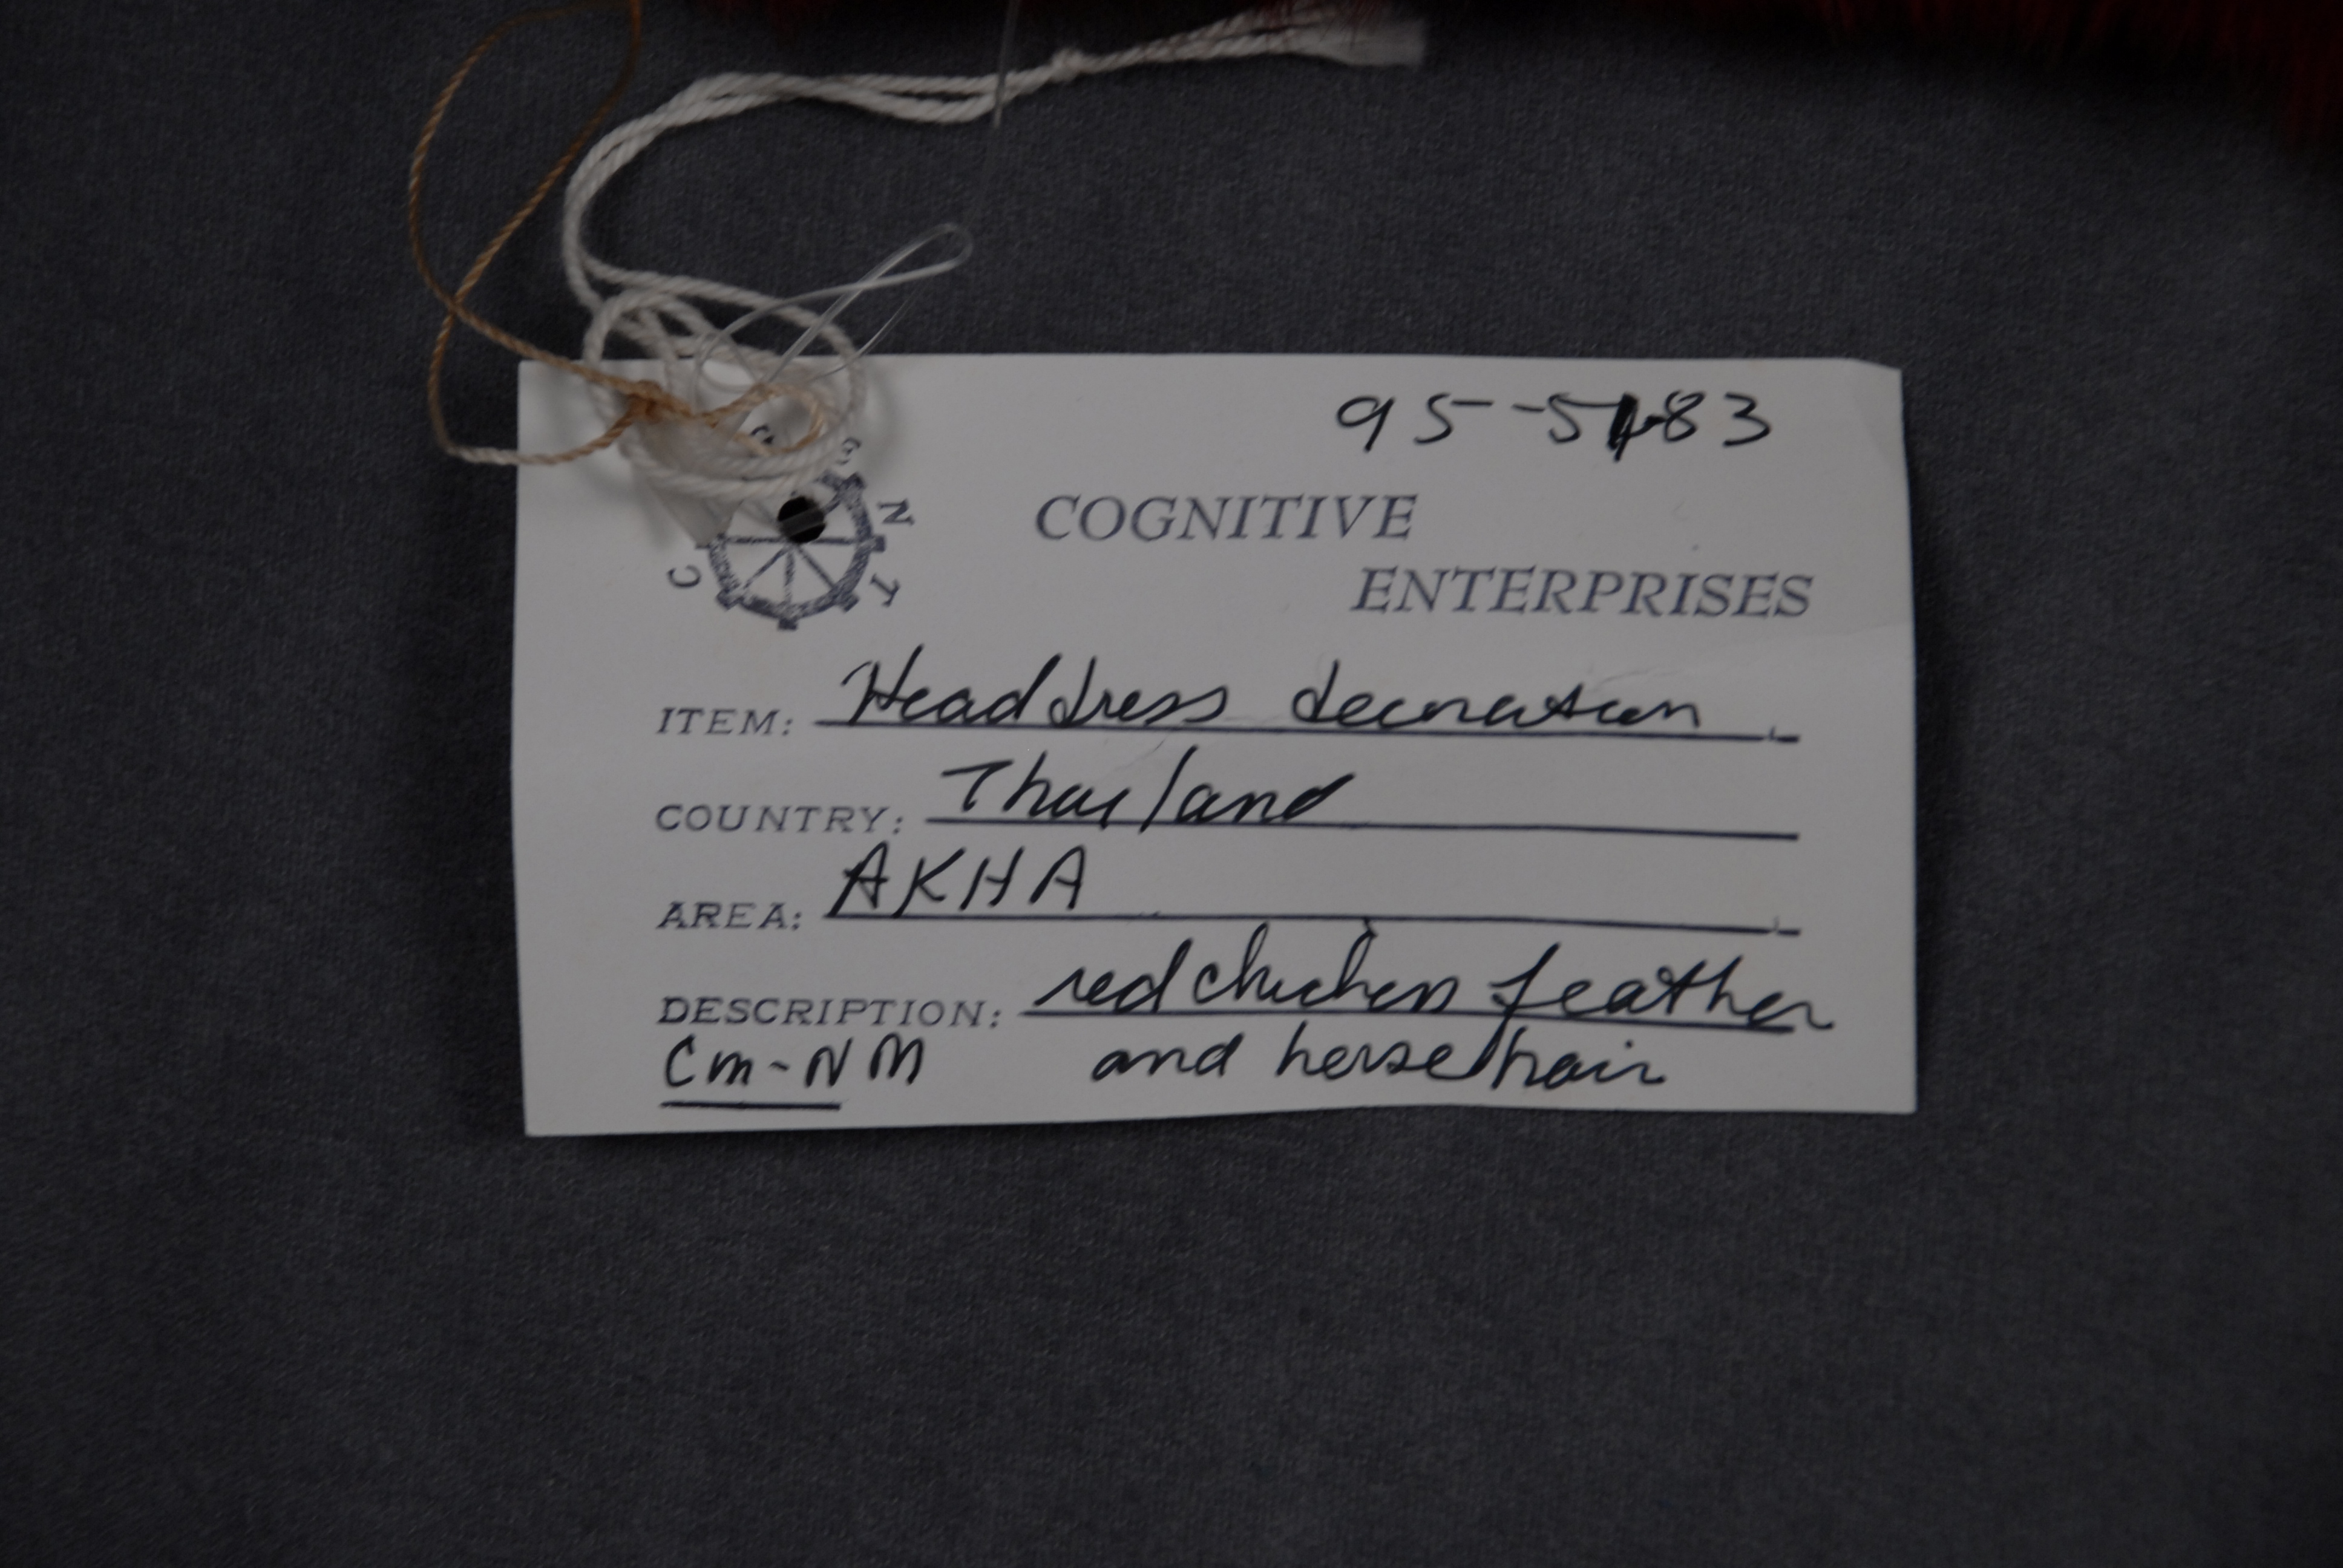 COGNITIVE
ENTERPRISES
ITEM: Headdress decoration
COUNTRY: Thailand
AREA: AKHA
DESCRIPTION: red chicken feather
Cm-NM and horse hair